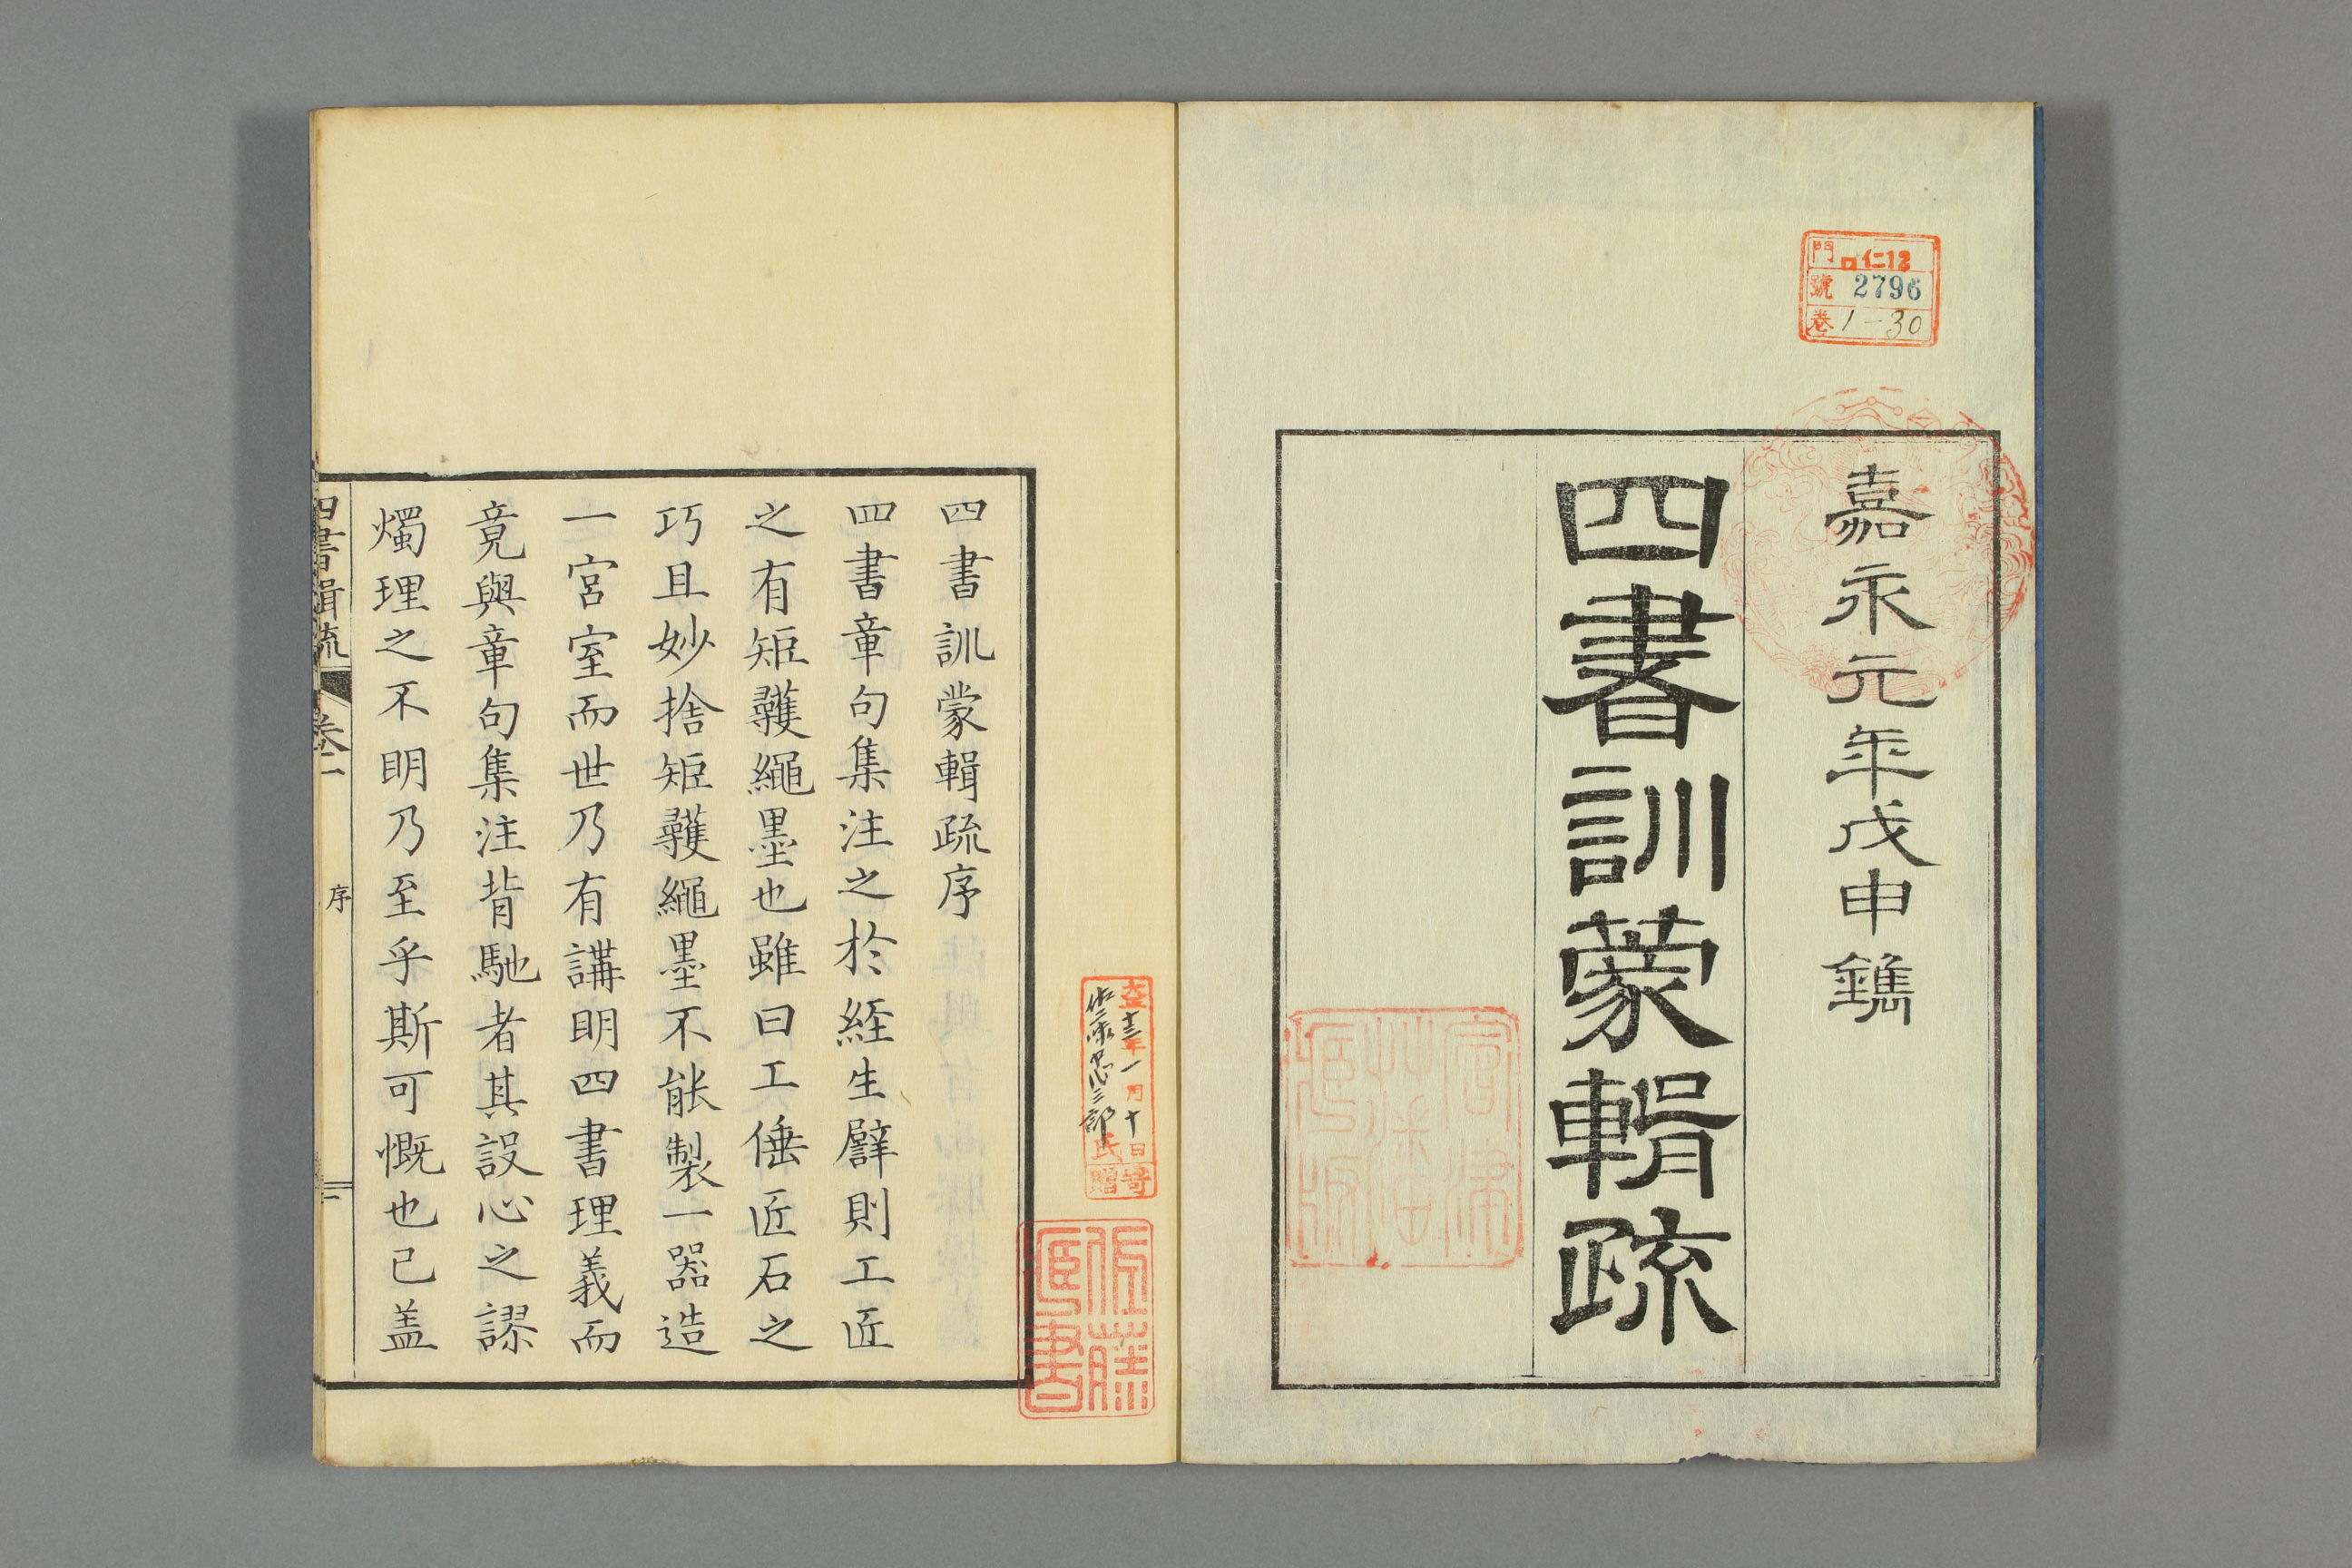 門 ロ仁12
號 2796
卷 1-30
嘉永元年戊申鐫
四書訓蒙輯疏
大正十三年一月十日
佐藤忠三郎氏寄贈
佐藤
藏書
四書訓蒙輯疏序
四書章句集注之於経生譬則工匠
之有矩彠繩墨也雖曰工倕匠石之
巧且妙捨矩彠繩墨不能製一器造
一宮室而世乃有講明四書理義而
竟與章句集注背馳者其設心之謬
燭理之不明乃至乎斯可慨也已盖
四書輯疏 卷一 序 一